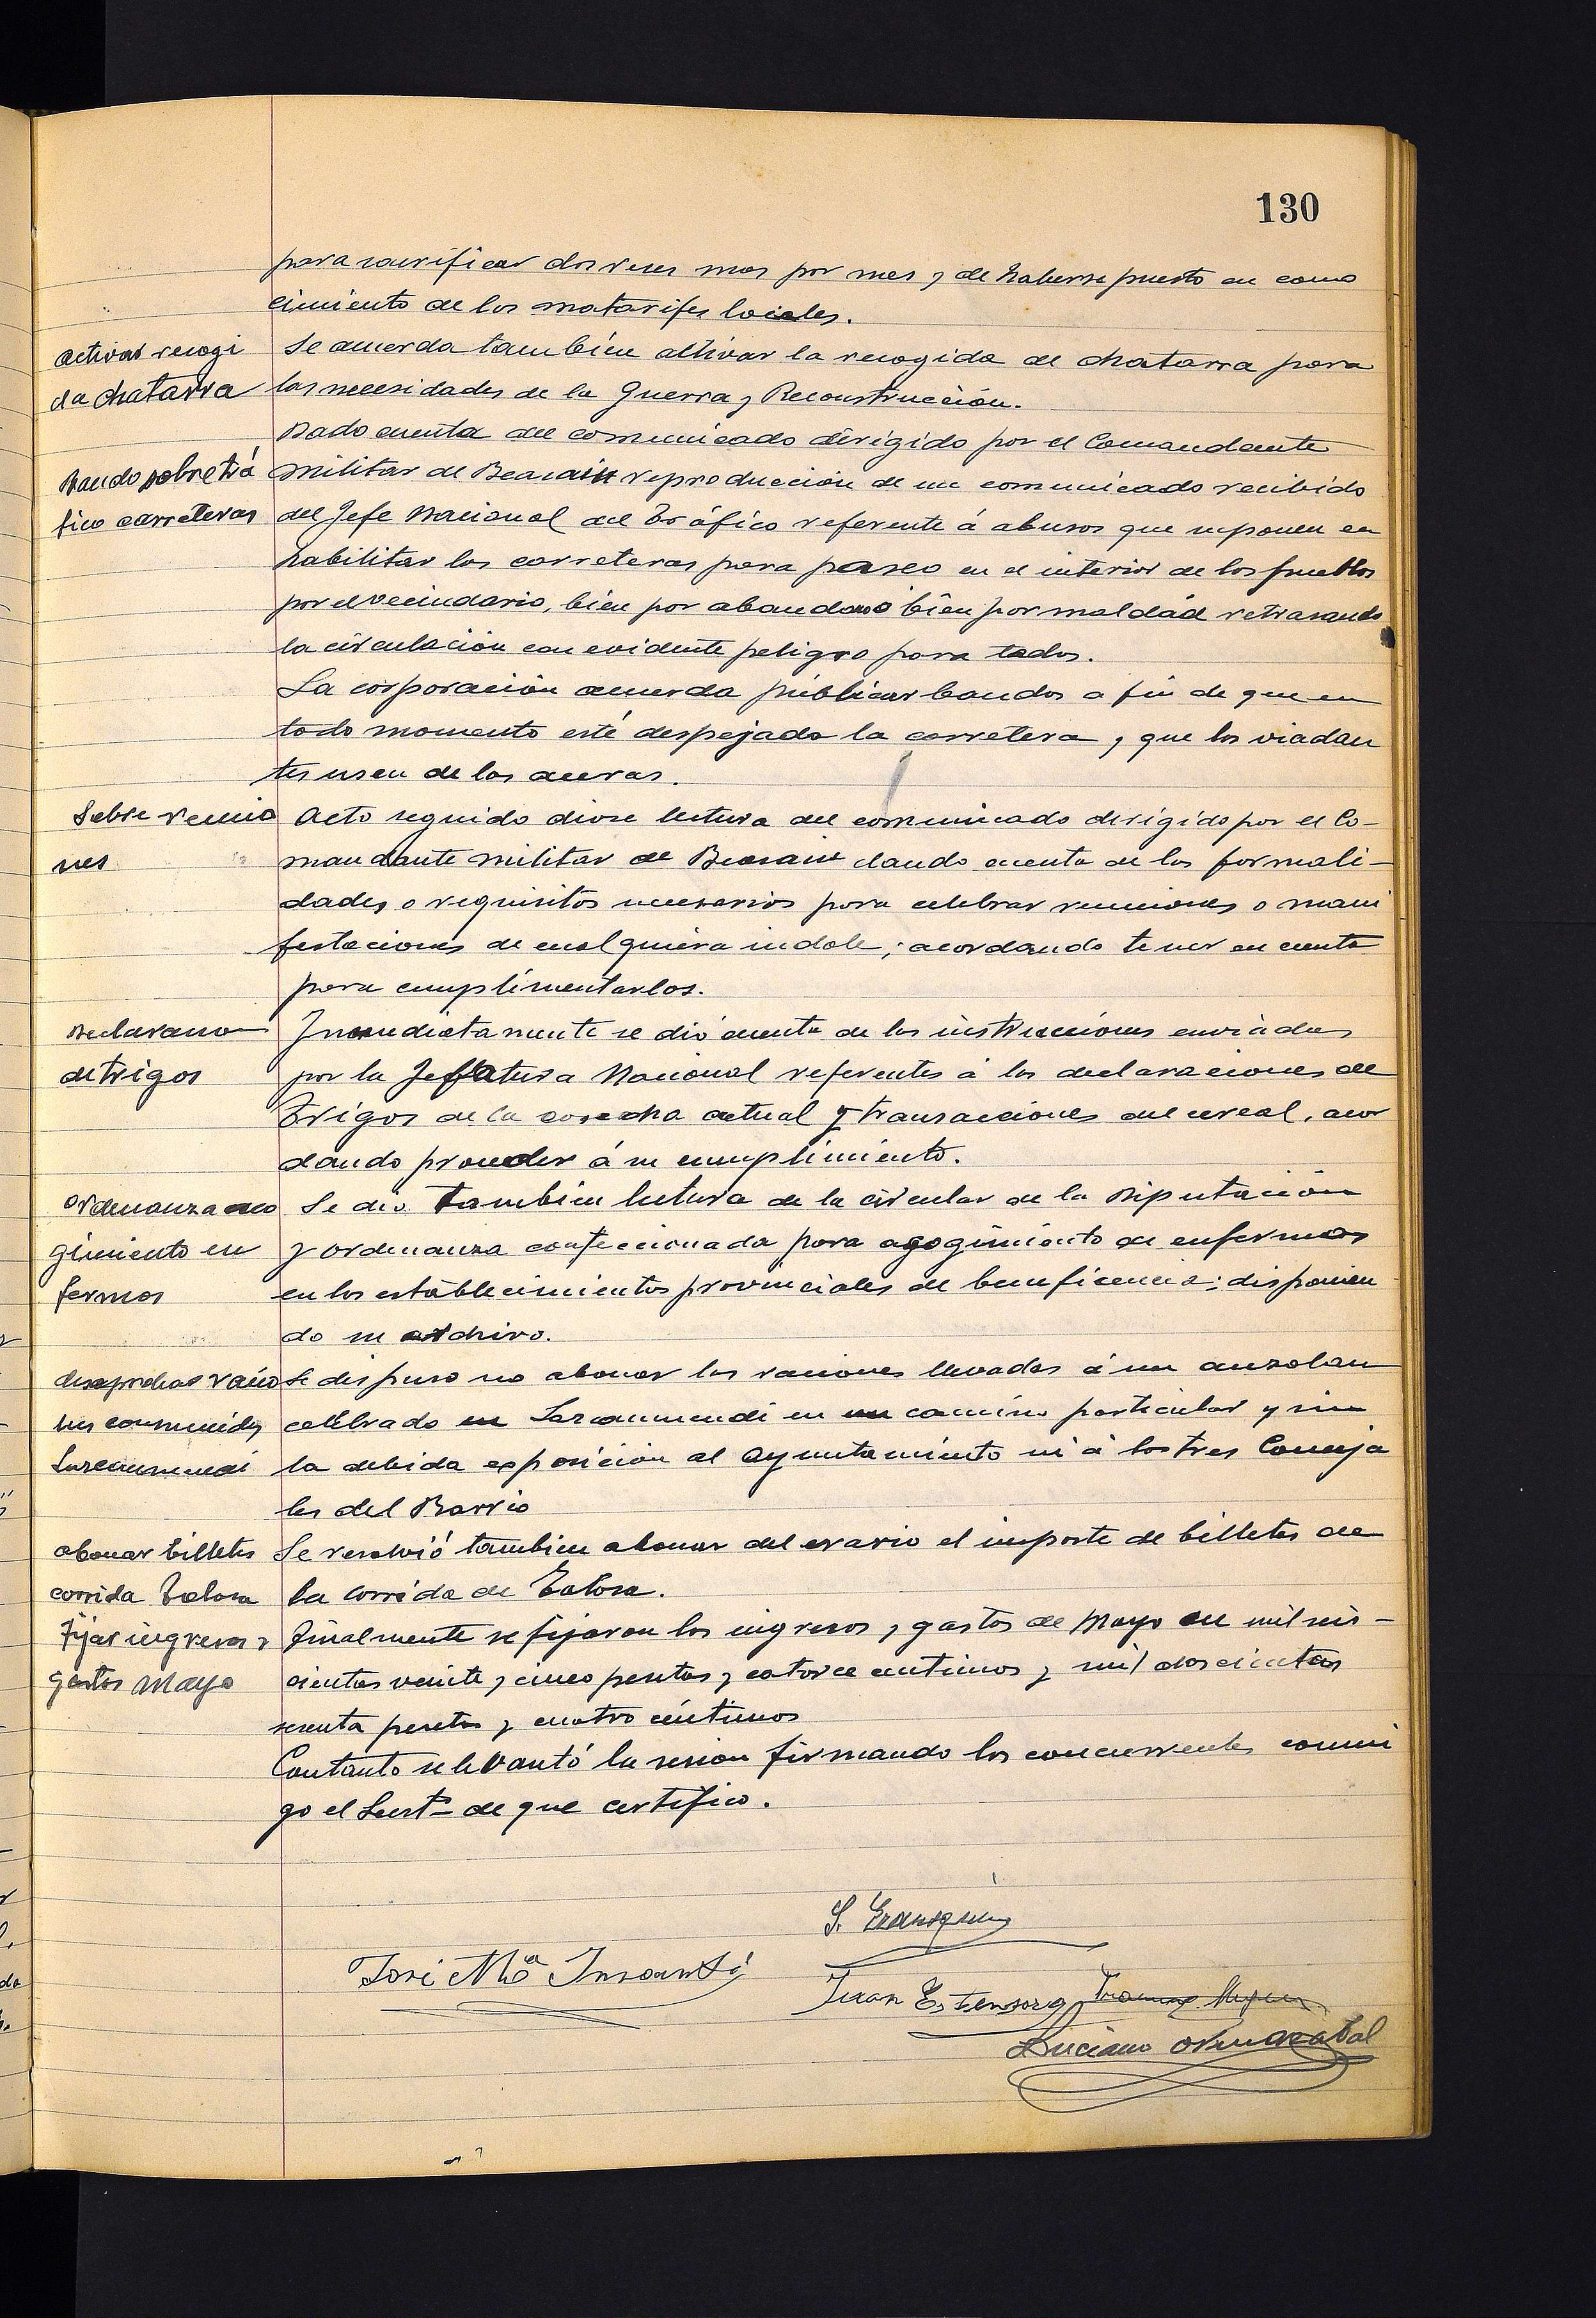 130
para sacrificar dos reses mas por mes y de haberse puesto en cono
cimiento de los matarifes locales.
activar recogi
da chatarra
Se acuerda tambien activar la recogida de chatarra para
las necesidades de la Guerra y Reconstrucción.
Dado cuenta del comunicado dirigido por el Comandante
Bando sobre trá
fico carreteras
militar de Beasain reproducción de un comunicado recibido
del Jefe Nacional del Tráfico referente á abusos que suponen en
habilitar las carreteras para paseo en el interior de los pueblos
por el vecindario, bien por abandono bien por maldad retrasando
la circulación con evidente peligro para todos.
La corporación acuerda publicar bandos a fin de que en
todo momento esté despejada la carretera y que los viadan
tes usen de las aceras.
Sobre reunio
nes
Acto seguido diose lectura del comunicado dirigido por el Co-
mandante militar de Beasain dando cuenta de las formali-
dades o requisitos necesarios para celebrar reuniones o mani
festaciones de cualquiera indole; acordando tener en cuenta
para cumplimentarlos.
Declaracion
de trigos
Inmediatamente se dió cuenta de las instrucciones enviadas
por la Jefatura Nacional referentes á las declaraciones de
Trigos de la cosecha actual y transacciones del cereal, acor
dando proceder á su cumplimiento.
ordenanza aco
gimiento en
fermos
Se dio tambien lectura de la circular de la Diputación
y ordenanza confeccionada para agogimiento de enfermos
en los establecimientos provinciales de beneficencia; disponien
do su archivo.
racio
nes
Se dispuso no abonar las raciones llevadas á un auzolan
celebrado en Lazcaumendi en un camino particular y sin
la debida exposición al Ayuntamiento ni á los tres Conceja
les del Barrio
abonar billetes
corrida Tolosa
Se resolvió tambien abonar del erario el importe de billetes de
la corrida de Tolosa.
Fijar ingresos y
gastos Mayo
Finalmente se fijaron los ingresos y gastos de Mayo en mil seis-
cientas veinte y cinco pesetas y catorce centimos y mil doscientas
sesenta pesetas y cuatro céntimos
Contanto se levantó la sesion firmando los concurrentes conmi
go el Secrt° de que certifico.
José Mª Insausti
Juan Estensoro
Luciano